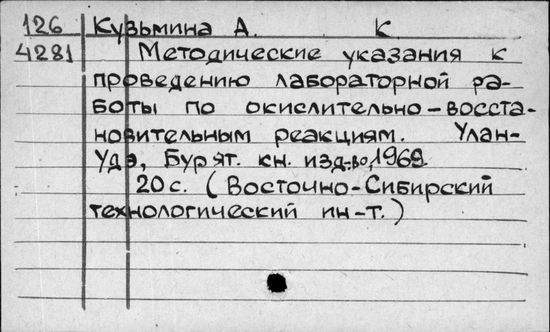 126 Кузьмина А. К
4281 Методические указания к
проведению лабораторной ра-
боты по окислительно-восста-
новительным реакциям. Улан-
Удэ, Бурят. кн. изд-во, 1969.
20 с. (Восточно-Сибирский
технологический ин-т.)